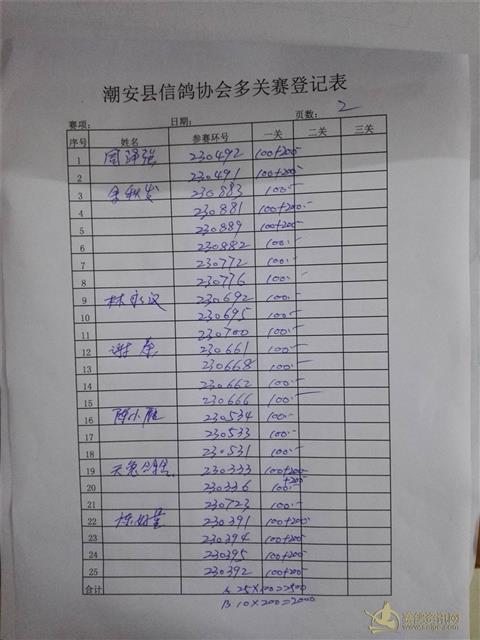 潮安县信鸽协会多关赛登记表
赛项： 日期： 页数： 2
序号 姓名 参赛环号 一关 二关 三关
1 230492 100+200-
2 230491 100+200-
3 余秋发 230883 100.-
4 230881 100+200-
5 230889 100+200-
6 230882 100.-
7 230772 100.-
8 230776 100.-
9 林永汉 230692 100.-
10 230695 100.-
11 230700 100.-
12 谢东 230661 100.-
13 230668 100.-
14 230662 100.-
15 230666 100.-
16 陈小雁 230534 100.-
17 230533 100.-
18 230531 100.-
19 230333 100+200-
20 230336 100.- +200-
21 230723 100.-
22 230391 100+200-
23 230394 100+200-
24 230395 100+200-
25 230392 100+200-
合计 A 25×100=2500
B 10×200=2000